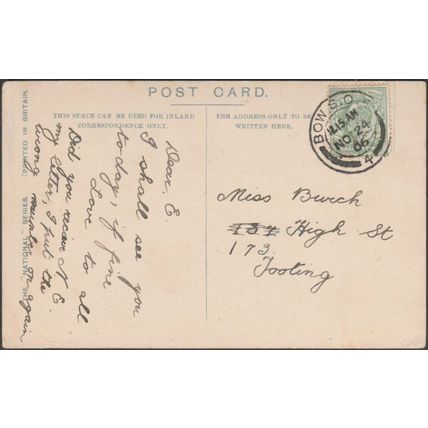 POST CARD.
THIS SPACE CAN BE USED FOR INLAND
CORRESPONDENCE ONLY.
THE ADDRESS ONLY TO BE
WRITTEN HERE.
THE "NATIONAL" SERIES. PRINTED IN BRITAIN.
BOW S.O.
12.15 AM
NO 24
06
4
Dear E.
I shall see you
to day, if fine
Love to all
Did you receive N. E.
my letter, I put the
wrong number on again
Miss Burch
137 High St
173.
Tooting